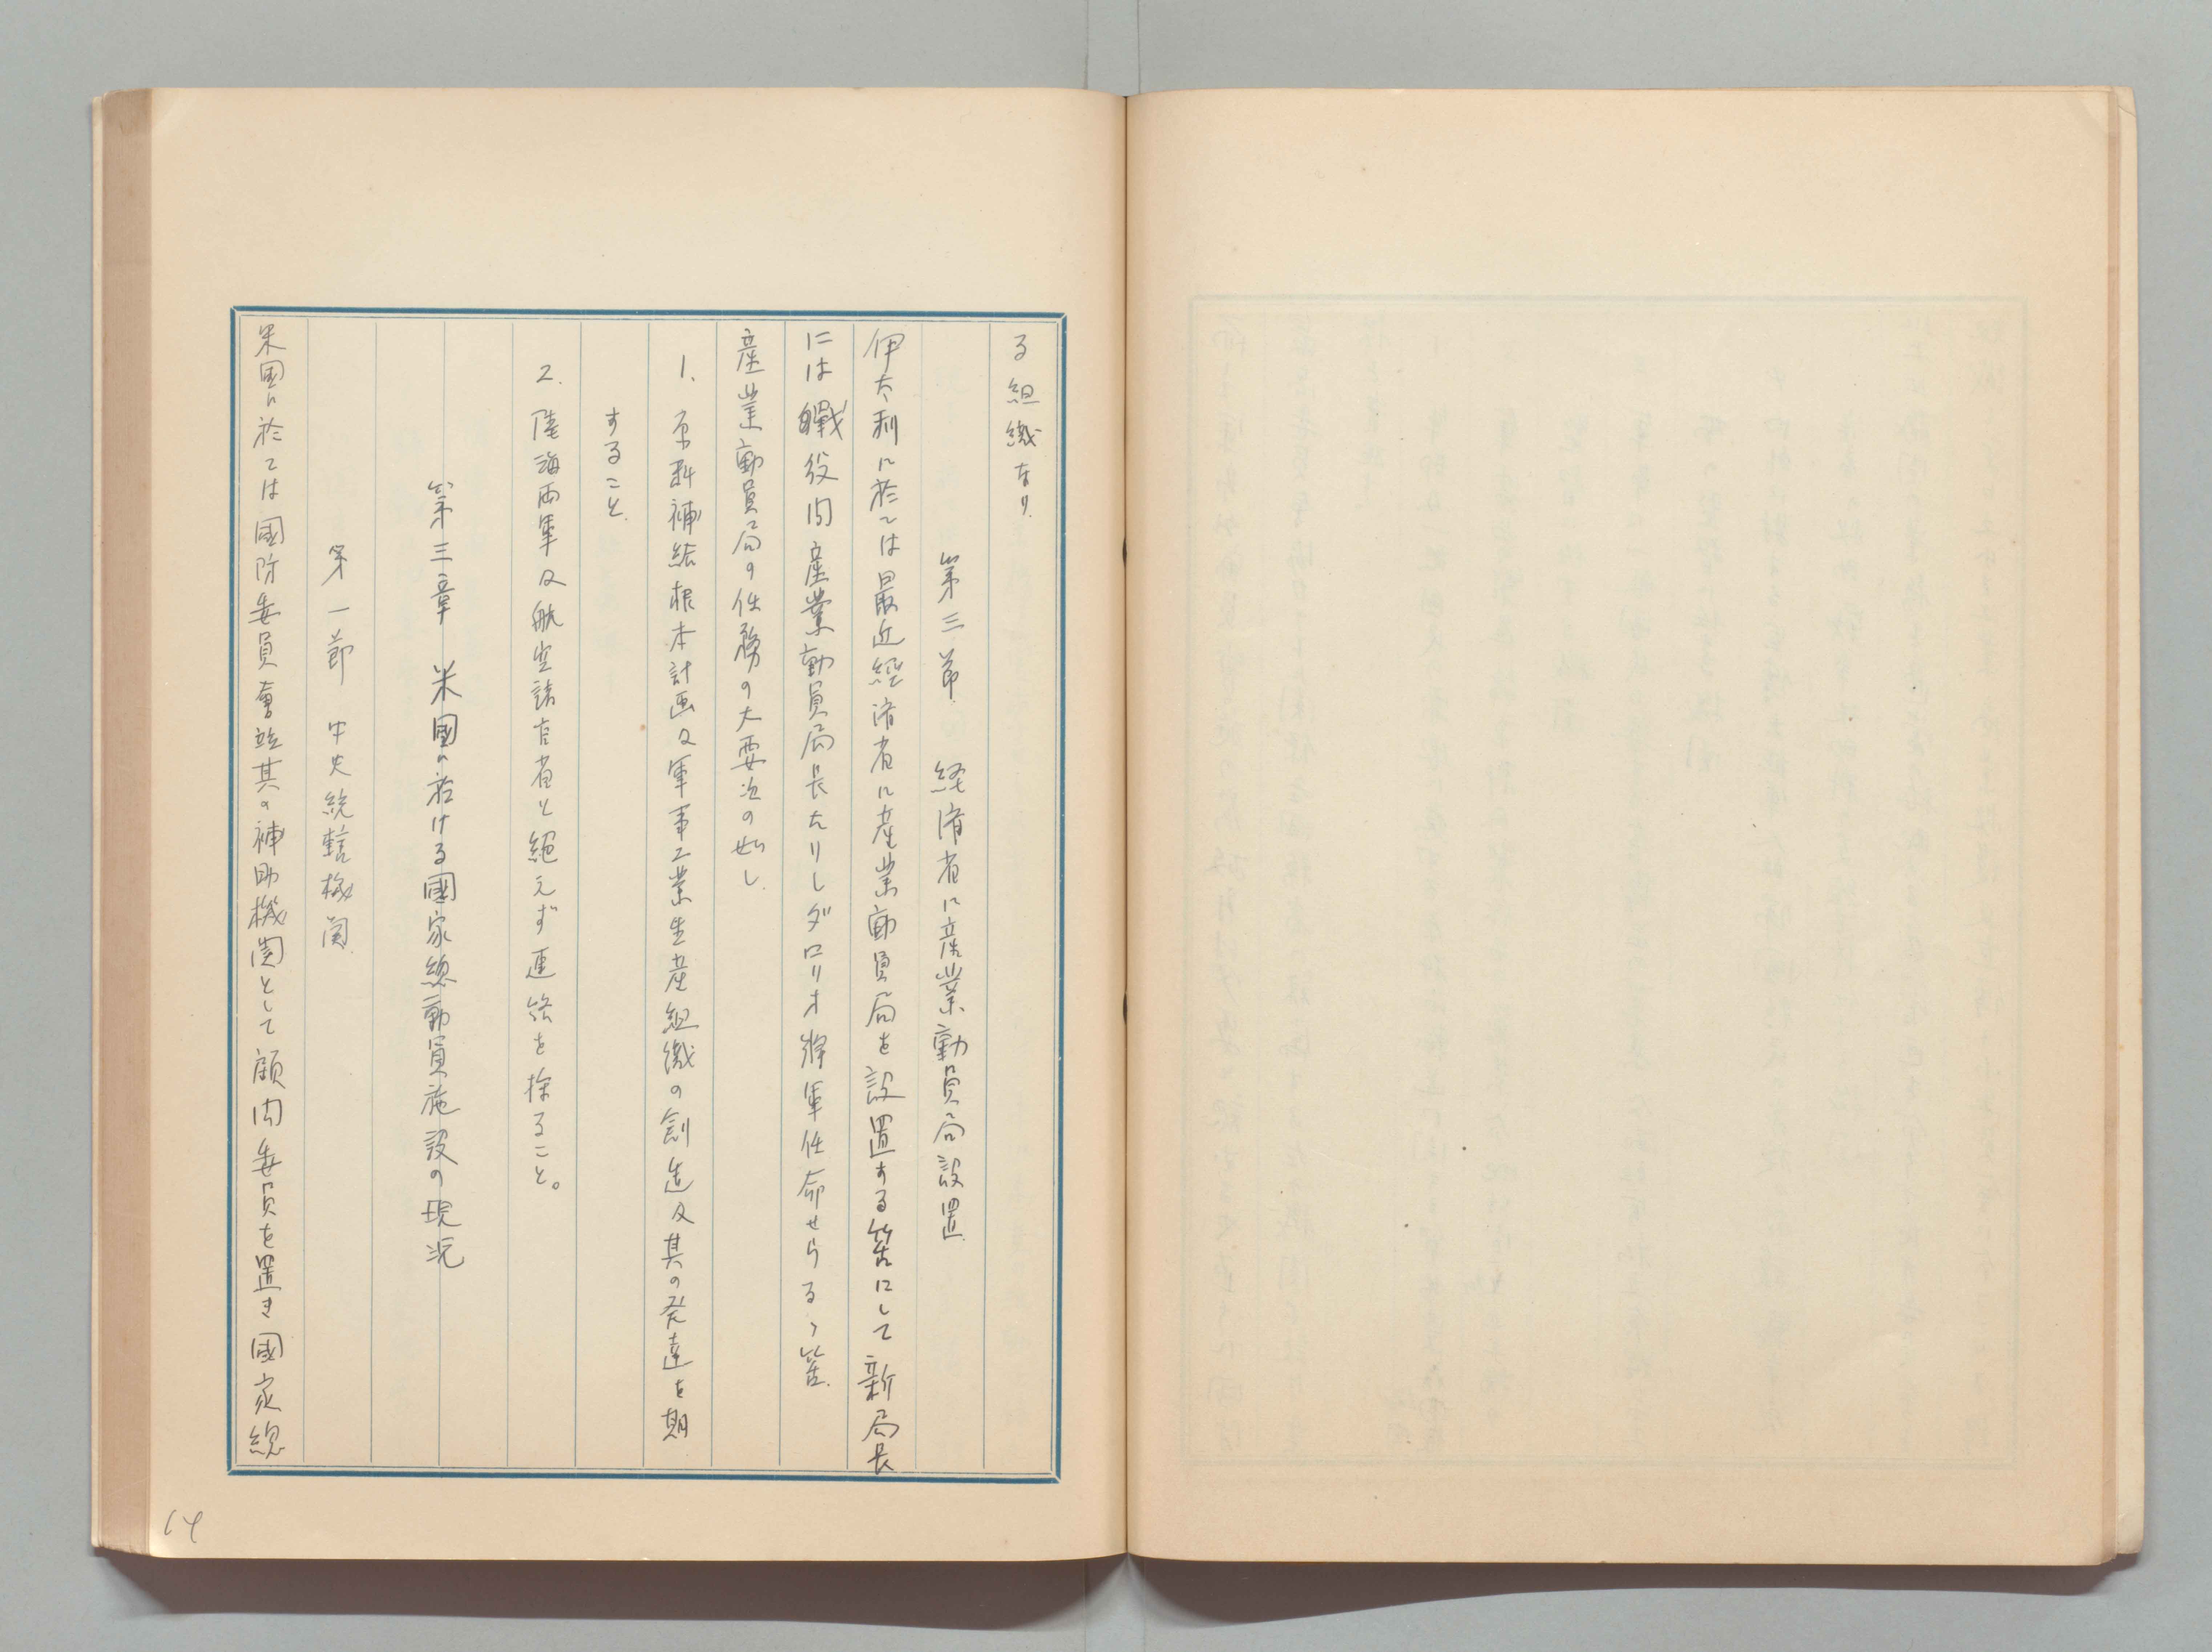 る組織なり
第三節 経済省に産業動員局設置
伊太利に於ては最近經済省に産業動員局を設置する筈にして新局長
には戰役間産業動員局長たりしダロリオ將軍任命せらるゝ筈
産業動員局の任務の大要次の如し
1、原料補給根本計画及軍事工業生産組織の創造及其の発達を期
すること
2、陸海両軍及航空諸官省と絕えず連絡を採ること。
第三章 米國に於ける國家總動員施設の現況
第一節 中央統轄機関
米國に於ては國防委員會並其の補助機関として顧問委員を置き國家總
14